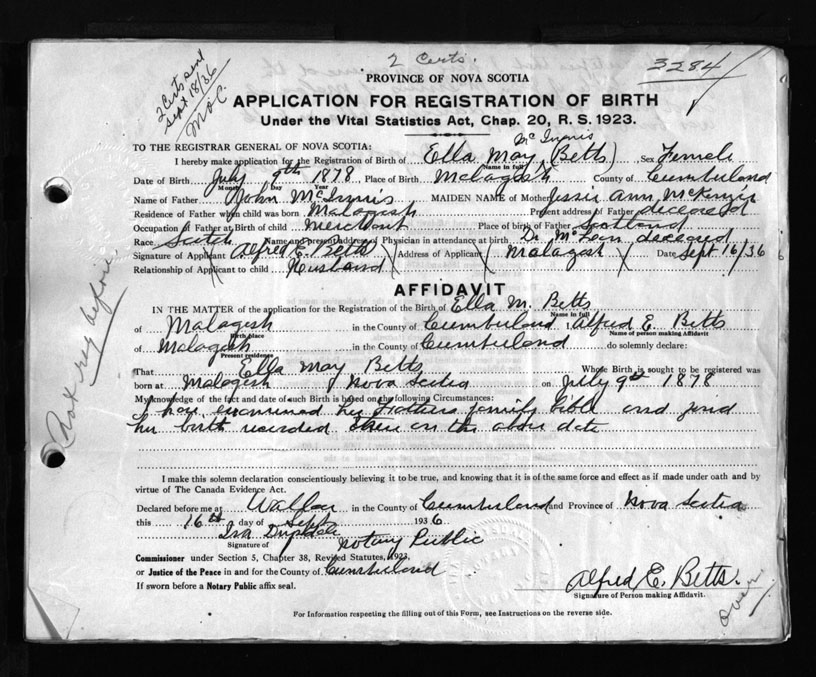 2 Certs.
3284
2 Certs sent
Sept 18/36
PROVINCE OF NOVA SCOTIA
APPLICATION FOR REGISTRATION OF BIRTH
Under the Vital Statistics Act, Chap. 20, R. S. 1923.
TO THE REGISTRAR GENERAL OF NOVA SCOTIA:
Mc Innis
I hereby make application for the Registration of Birth of Ella May (Betts) Sex Female
Name in full
Date of Birth July 9th 1878 Place of Birth Malagash County of Cumberland
Month Day Year
Name of Father John McInnis MAIDEN NAME of Mother Jessie Ann McKenzie
Residence of Father when child was born Malagash Present address of Father deceased
Occupation of Father at Birth of child Merchant Place of birth of Father Scotland
Race Scotch Name and present address of Physician in attendance at birth Dr McLean deceased
Signature of Applicant Alfred E. Betts Address of Applicant Malagash Date Sept 16/36
Relationship of Applicant to child Husband
AFFIDAVIT
IN THE MATTER of the application for the Registration of the Birth of Ella M. Betts
Name in full
of Malagash in the County of Cumberland I, Alfred E. Betts
Birth place Name of person making Affidavit
of Malagash in the County of Cumberland do solemnly declare:
Present residence
That Ella May Betts Whose Birth is sought to be registered was
born at Malagash Nova Scotia on July 9th 1878
My knowledge of the fact and date of such Birth is based on the following Circumstances:
I have examined her Fathers family bible and find
her birth recorded there on the above date
I make this solemn declaration conscientiously believing it to be true, and knowing that it is of the same force and effect as if made under oath and by
virtue of The Canada Evidence Act.
Declared before me at Wallace in the County of Cumberland and Province of Nova Scotia
this 16th day of Sept 1936
Notary Public
Signature of
Commissioner under Section 5, Chapter 38, Revised Statutes, 1923,
or Justice of the Peace in and for the County of Cumberland
If sworn before a Notary Public affix seal.
Alfred E. Betts.
Signature of Person making Affidavit.
Over
For Information respecting the filling out of this Form, see Instructions on the reverse side.
Not reg before